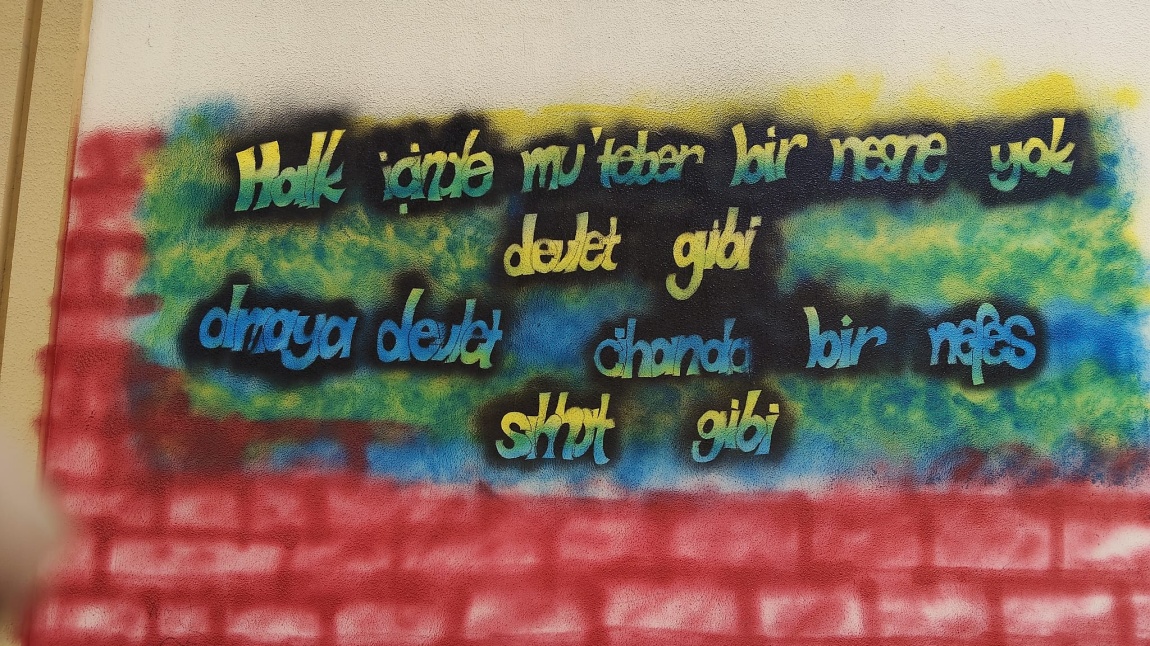 Halk içinde mu'teber bir nesne yok
devlet gibi
olmaya devlet cihanda bir nefes
sıhhat gibi